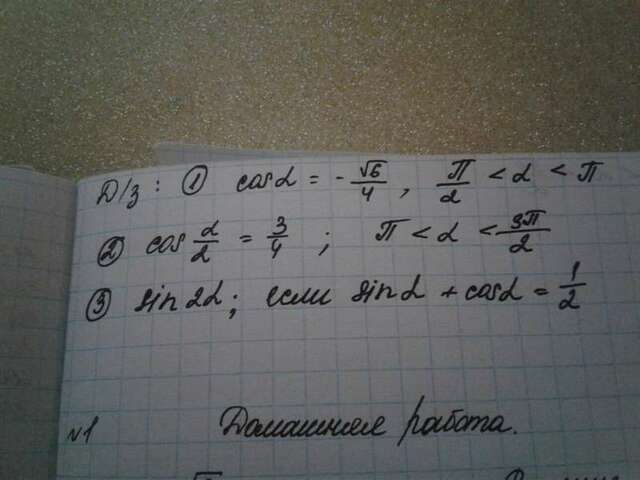 Д/з: ① cosα = -√6/4, П/2 < α < П
② cos α/2 = 3/4; П < α < 3П/2
③ sin2α; если sinα + cosα = 1/2
Домашняя работа.
№1